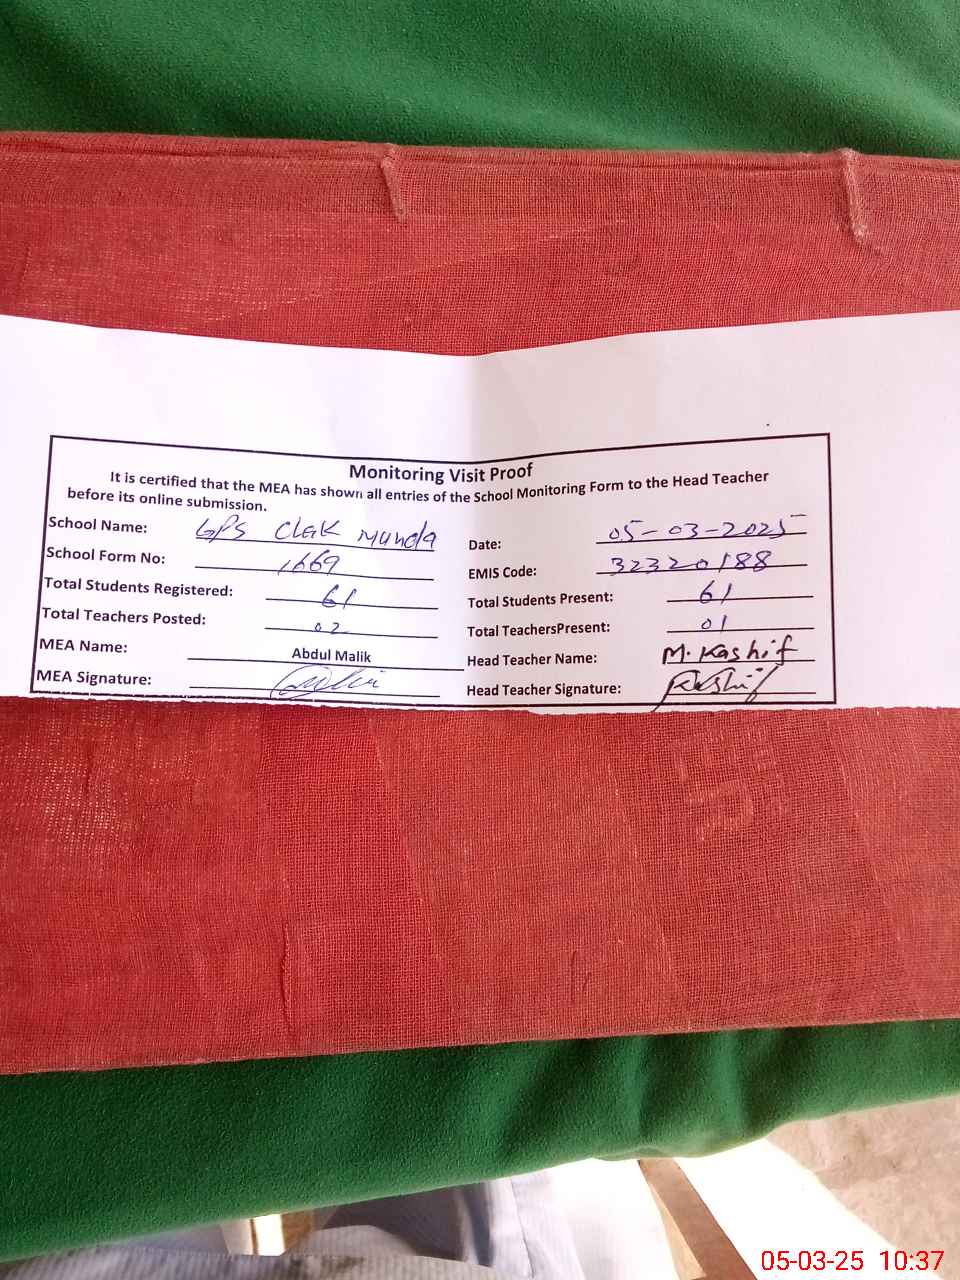 Monitoring Visit Proof
It is certified that the MEA has shown all entries of the School Monitoring Form to the Head Teacher
before its online submission.
School Name: GPS Chak Munda
Date: 05-03-2025
School Form No: 1669
EMIS Code: 32320188
Total Students Registered: 61
Total Students Present: 61
Total Teachers Posted: 02
Total TeachersPresent: 01
MEA Name: Abdul Malik
Head Teacher Name: M. Kashif
MEA Signature:
Head Teacher Signature: Kashif
05-03-25 10:37